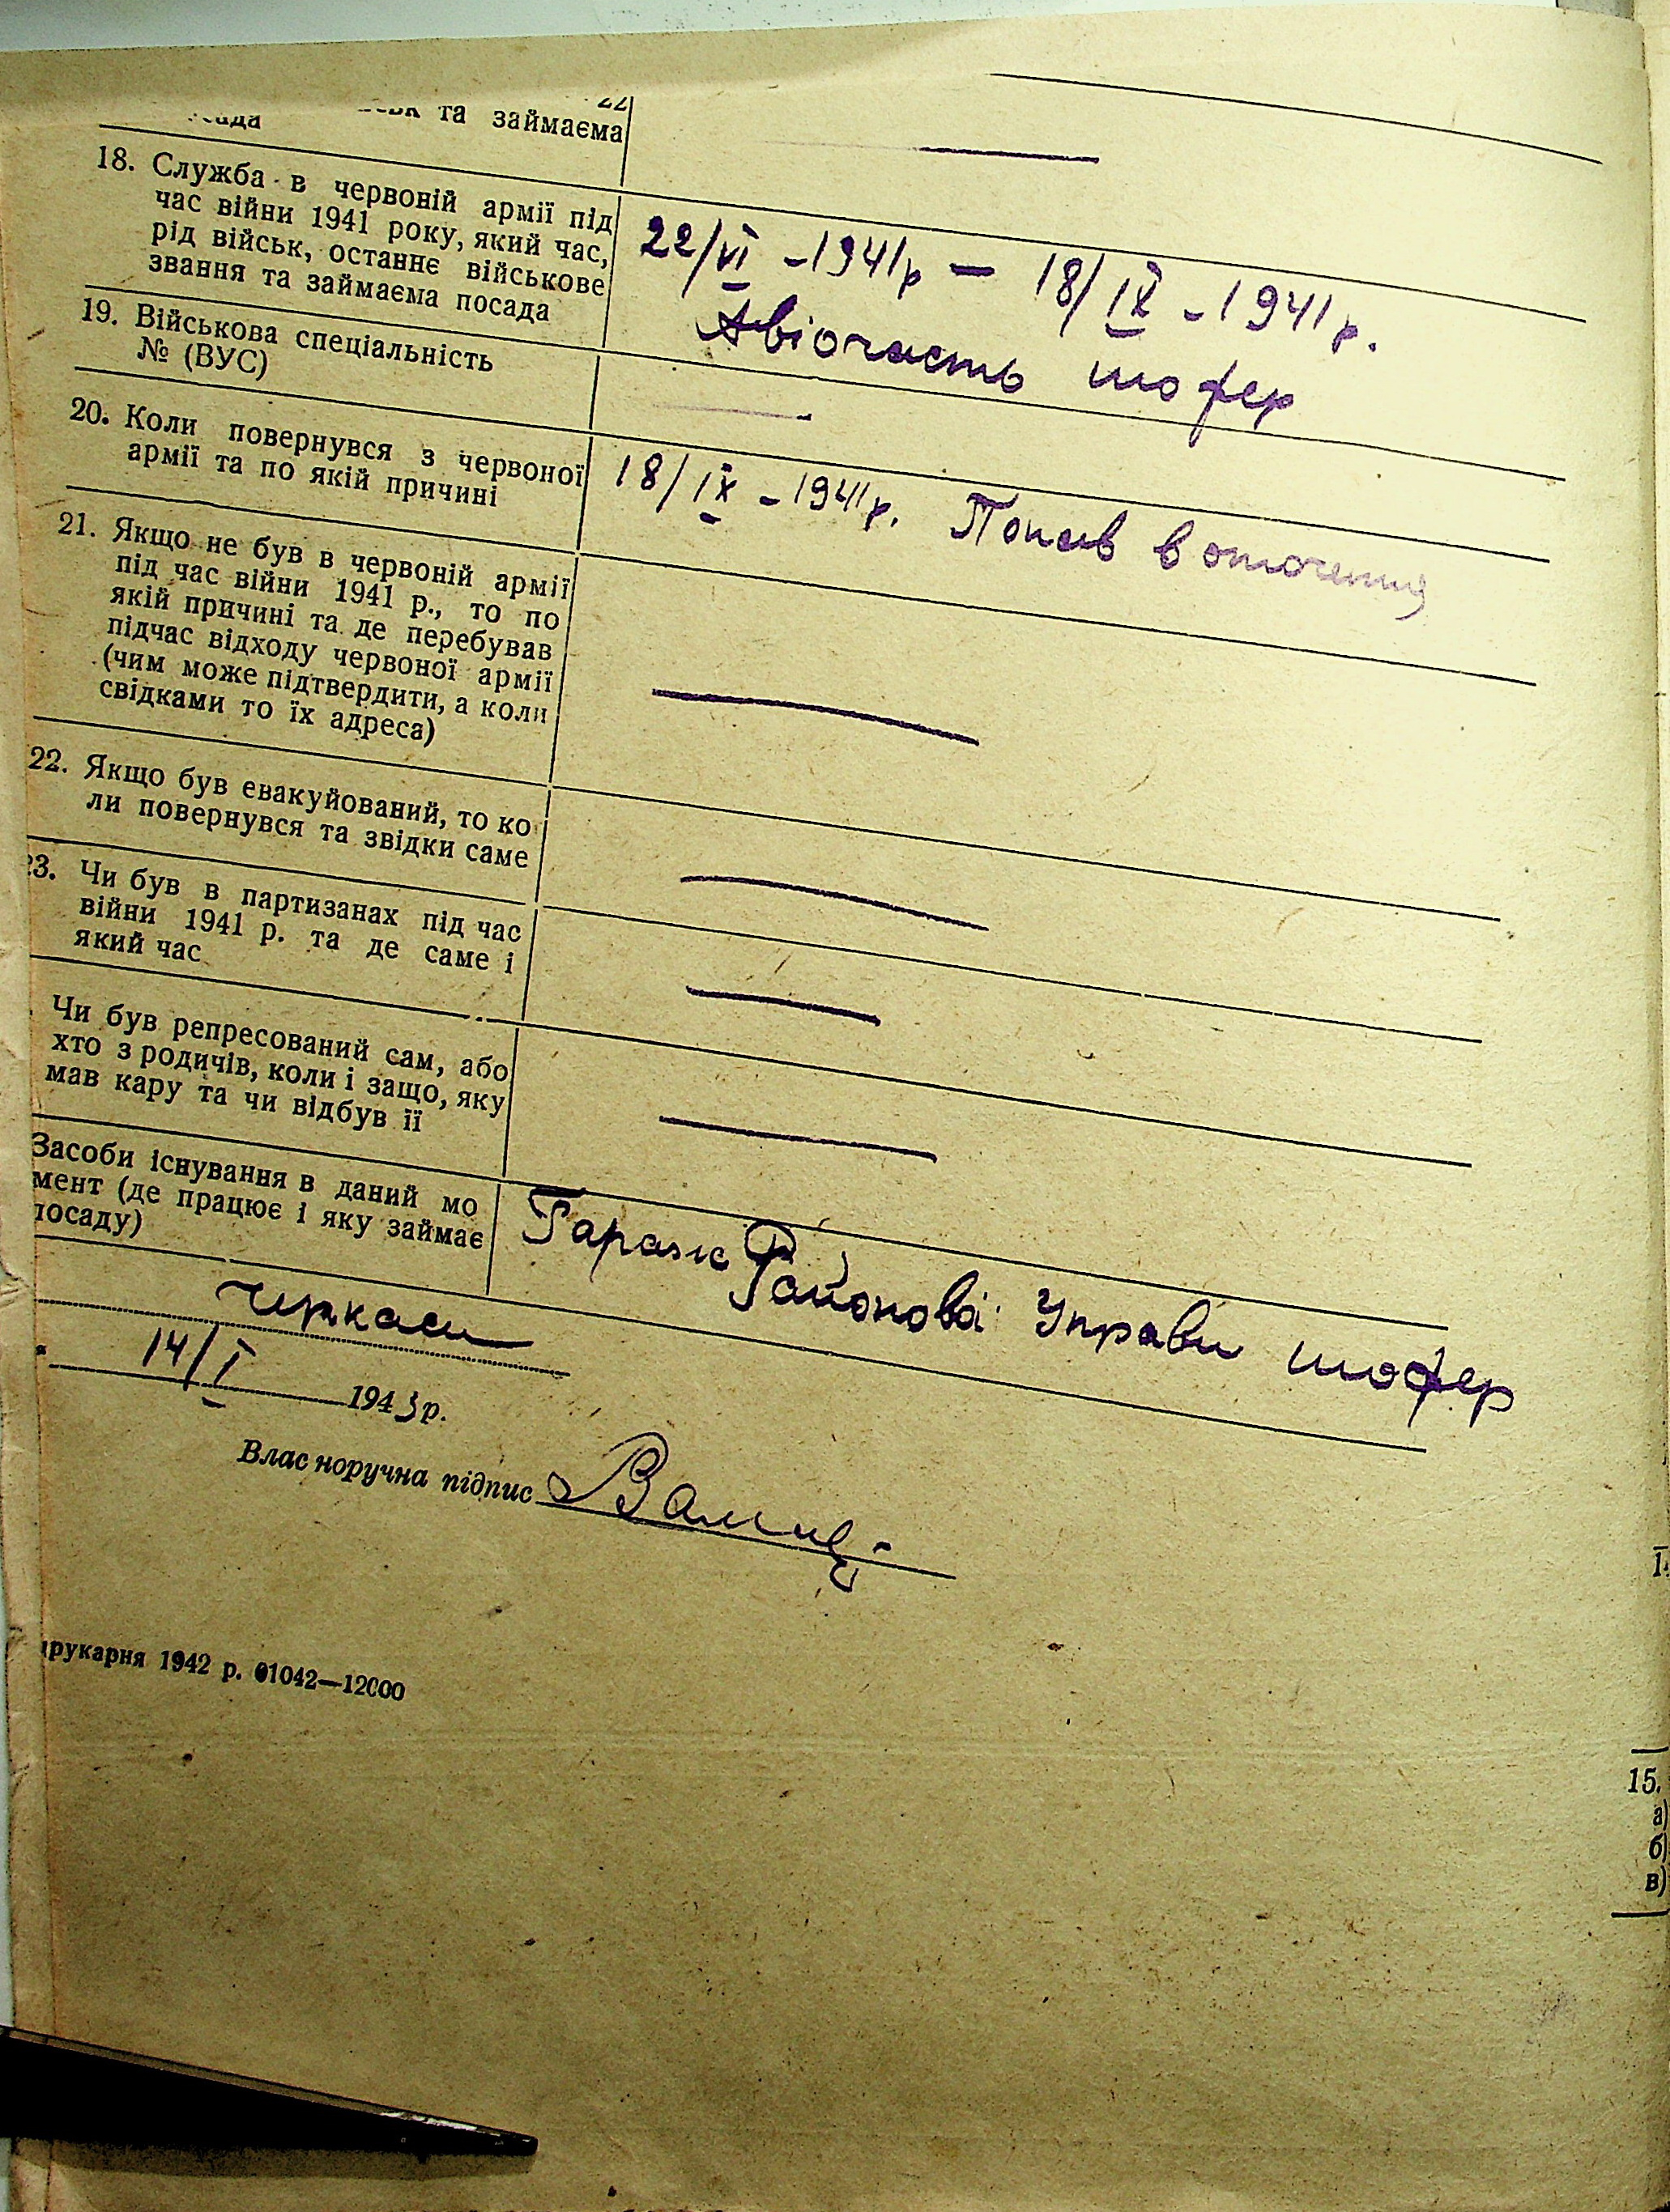 та займаєма
18. Служба в червоній армії під
час війни 1941 року, який час,
рід військ, останнє військове
звання та займаєма посада
22/VI - 1941р — 18/IX - 1941 р.
Авіочасть шофер
19. Військова спеціальність
№ (ВУС)
20. Коли повернувся з червоної
армії та по якій причині
18/IX - 1941р. Попав в оточення
21. Якщо не був в червоній армії
під час війни 1941 р., то по
якій причині та де перебував
підчас відходу червоної армії
(чим може підтвердити, а коли
свідками то їх адреса)
22. Якщо був евакуйований, то ко
ли повернувся та звідки саме
23. Чи був в партизанах під час
війни 1941 р. та де саме і
який час
Чи був репресований сам, або
хто з родичів, коли і защо, яку
мав кару та чи відбув її
Засоби існування в даний мо
мент (де працює і яку займає
посаду)
Гараж Районової Управи шофер
Черкаси
14/I 1943 р.
Влас норучна підпис
рукарня 1942 р. 01042—12000
15.
а)
б)
в)